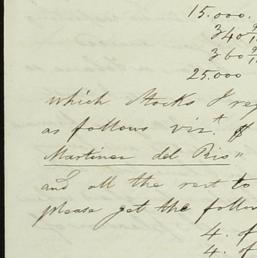 15.000.
340
360
25.000
which Stocks I
as follows viz.t
Martinez del Rio"
and all the rest to
please get the follow
4. of
4. of